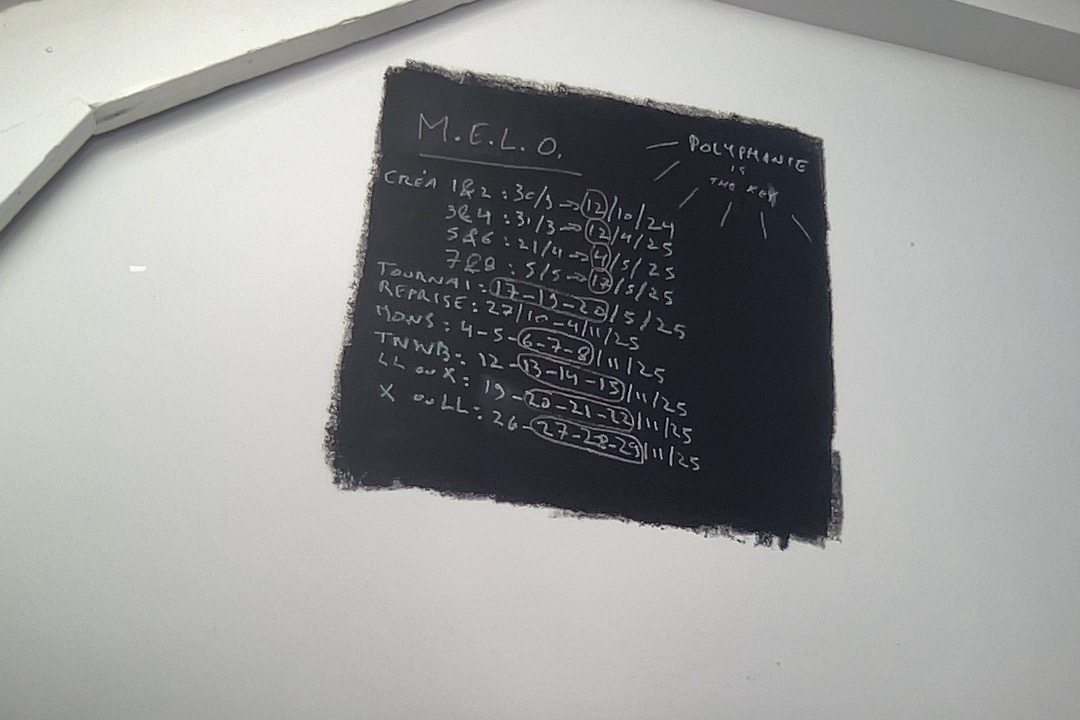 M.E.L.O.
POLYPHANIE
IS
THE KEY
CRÉA 1&2 : 30/9 → 12/10/24
3&4 : 31/3 → 12/4/25
5&6 : 21/4 → 4/5/25
7&8 : 5/5 → 17/5/25
TOURNAI : 17-19-20/5/25
REPRISE : 27/10-4/11/25
MONS : 4-5-6-7-8/11/25
TNWB : 12-13-14-15/11/25
LL ou X : 19-20-21-22/11/25
X ou LL : 26-27-28-29/11/25